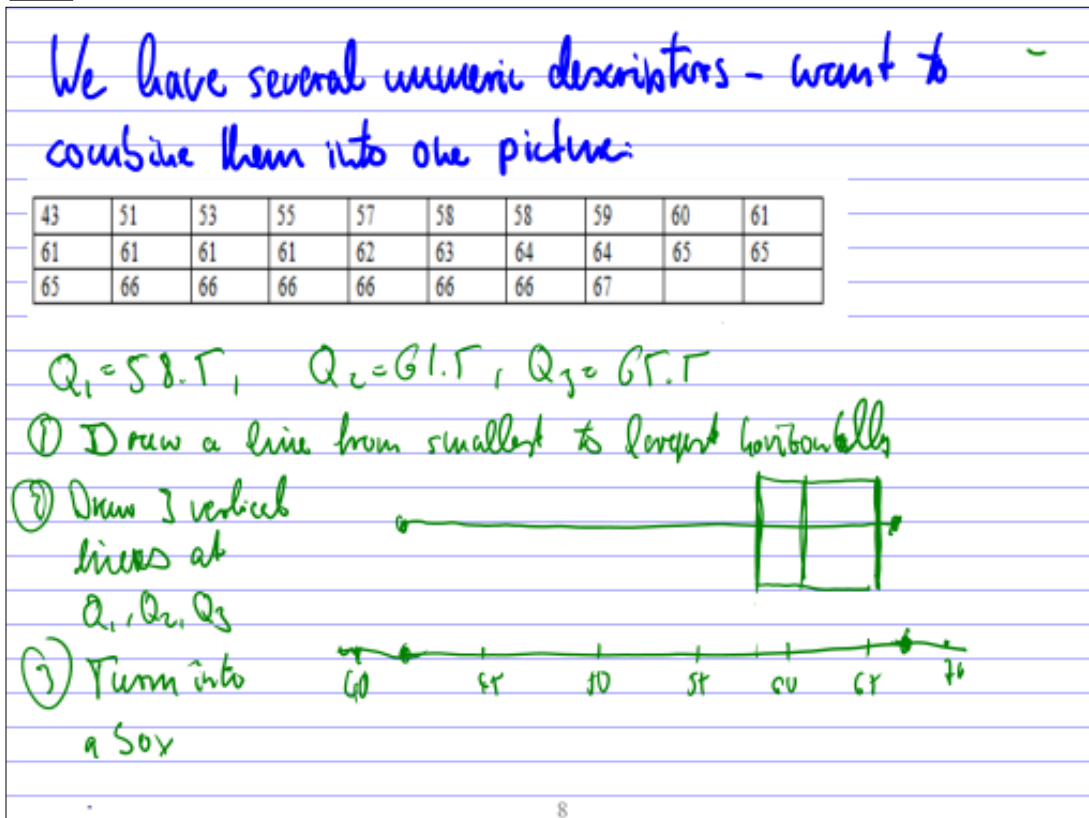 We have several numeric descriptors - want to
combine them into one picture:
43 51 53 55 57 58 58 59 60 61
61 61 61 61 62 63 64 64 65 65
65 66 66 66 66 66 66 67
Q₁ = 58.5, Q₂ = 61.5, Q₃ = 65.5
① Draw a line from smallest to largest horizontally
② Draw 3 vertical
lines at
Q₁, Q₂, Q₃
③ Turn into
a box
40 45 50 55 60 65 70
8